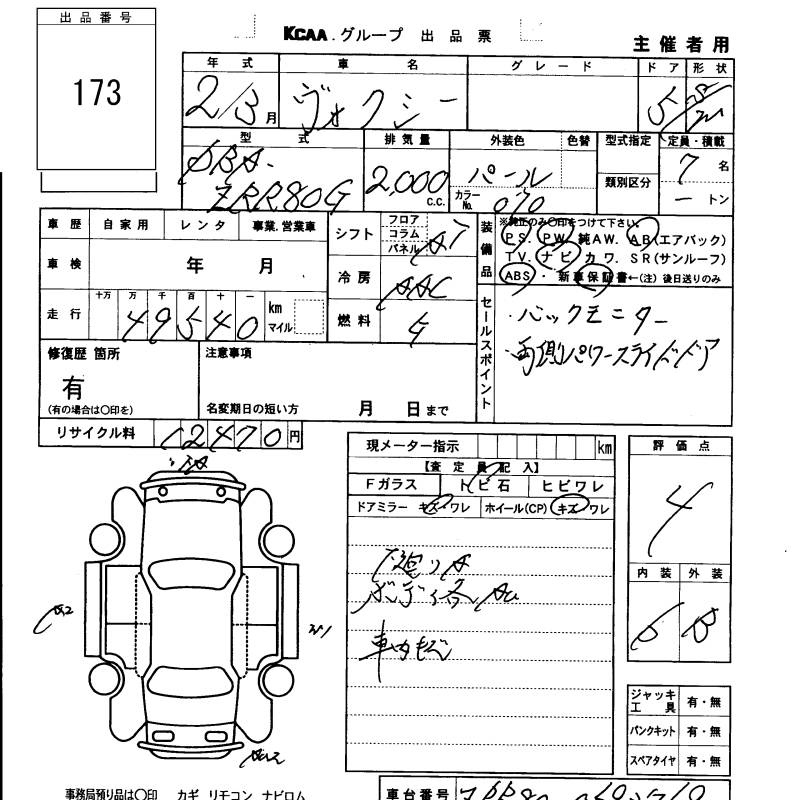 出品番号
173
KCAA.グループ 出品票
主催者用
年式 車名 グレード ドア 形状
2/3月 ヴォクシー 5
型式 排気量 外装色 色替 型式指定 定員・積載
DBA-
ZRR80G 2,000 C.C. パール 類別区分 7名
カラーNo. 070 ートン
車歴 自家用 レンタ 事業.営業車
シフト フロア コラム パネル AT
装備品
※純正のみ○印をつけて下さい
PS. PW. 純AW. AB(エアバック)
TV. ナビ カワ. SR(サンルーフ)
ABS・新車保証書←(注) 後日送りのみ
車検 年 月
冷房 AAC
走行 十万 万 千 百 十 一
49540 km マイル
燃料 G
セールスポイント
・バックモニター
・両側パワースライドドア
修復歴 箇所
有
(有の場合は○印を)
注意事項
名変期日の短い方 月 日まで
リサイクル料 12470円
現メーター指示 km
【査定員記入】
Fガラス トビ石 ヒビワレ
ドアミラー キズ・ワレ ホイール(CP) キズ・ワレ
下廻りA
ボディ各AU
車内
評価点
4
内装 外装
6 B
A2
ジャッキ工具 有・無
パンクキット 有・無
スペアタイヤ 有・無
事務局預り品は○印 カギ リモコン ナビロム
車台番号